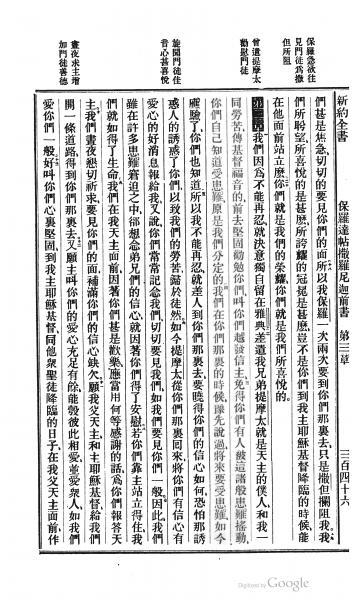 新約全書　保羅達帖撒羅尼迦前書　第三章　三百四十六
保羅急欲往
見門徒爲撒
但所阻
曾遣提摩太
勸慰門徒
旋聞門徒佳
音心甚喜悅
晝夜求主增
加門徒善德
們甚是焦急、切切的要見你們的面、所以我保羅一次兩次要到你們那裏去、只是撒但攔阻我、我
們所盼望所喜悅的是甚麼、所誇耀的冠冕是甚麼、豈不是你們到我主耶穌基督降臨的時候、能
在他面前站立麼、你們就是我們的榮耀、你們就是我們所喜悅的。
第三章　我們因爲不能再忍、就決意獨自留在雅典、差遣我兄弟提摩太、就是天主的僕人、和我一
同勞苦、傳基督福音的、前去堅固勸勉你們、叫你們越發信主、免得你們有人被這諸般患難搖動、
你們自己知道受患難原是我們分定的、我們在你們那裏的時候、豫先說過、將來要受患難、如今
應驗了、你們也知道、所以我不能再忍、就差人到你們那裏去、要曉得你們的信心如何、恐怕那誘
惑人的誘惑了你們、以致我們的勞苦、歸於徒然、如今提摩太從你們那裏回來、將你們有信心有
愛心的好消息報給我、又說、你們常常記念我們、切切要見我們、如我們要見你們一般、因此我們
雖在許多患難窘迫之中、卻想念弟兄們的信心、就因著你們得了安慰、若你們靠主站立得住、我
們就如得了生命、我們在我天主面前、因著你們甚是歡樂、應當用何等感謝的話、爲你們報答天
主、我們晝夜懇切祈求要見你們的面、補滿你們的信心缺欠、願我父天主和主耶穌基督、給我們
開一條道路、得到你們那裏去、又願主叫你們的愛心充足有餘、能彀彼此相愛、並愛衆人、如我們
愛你們一般、好叫你們心裏堅固、到我主耶穌基督、同他衆聖徒降臨的日子、在我父天主面前、作
Digitized by Google